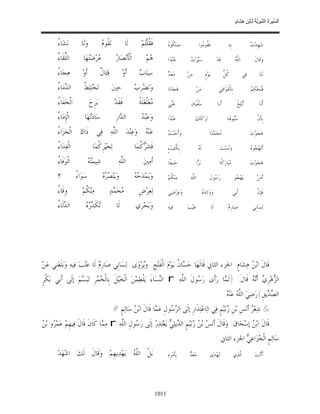 السيرة النبوية لابن هشام
شهدت به فقوموا صدقوه فقلتم لا نقوم ولا نشاء
وقال الله قد سيرت جندا هم الأنصار عرضتها اللقاء
لنا في كل يوم من معد سباب أو قتال أو هجاء
فنحكم بالقوافي من هجانا ونضرب حين تختلط الدماء
ألا أبلغ أبا سفيان عني مغلغلة فقد برح الخفاء
بأن سيوفنا تركتك عبدا وعبد الدار سادتها الإماء
هجوت محمدا وأجبت عنه وعند الله في ذاك الجزاء
أتهجوه ولست له بكفء فشركما لخيركما الفداء
هجوت مباركا برا حنيفا أمين الله شيمته الوفاء
أمن يهجو رسول الله منكم ويمدحه وينصره سواء ؟
فإن أبي ووالده وعرضي لعرض محمد منكم وقاء
لساني صارم لا عيب فيه وبحري لا تكدره الدلاء
قال ابن هشام الجزء الثاني قالها حسان يوم الفتح ويروى لساني صارم لا عتب فيه وبلغني عن
الزهري أنه قال لما رأى رسول الله r النساء يلطمن الخيل بالخمر تبسم إلى أبي بكر
الصديق رضي الله عنه
شعر أنس بن زنيم في الاعتذار إلى الرسول مما قال ابن سالم
قال ابن إسحاق وقال أنس بن زنيم الديلي يعتذر إلى رسول الله r مما كان قال فيهم عمرو بن
سالم الخزاعي الجزء الثاني
أأنت الذي تهدى معد بأمره بل الله يهديهم وقال لك اشهد
1011